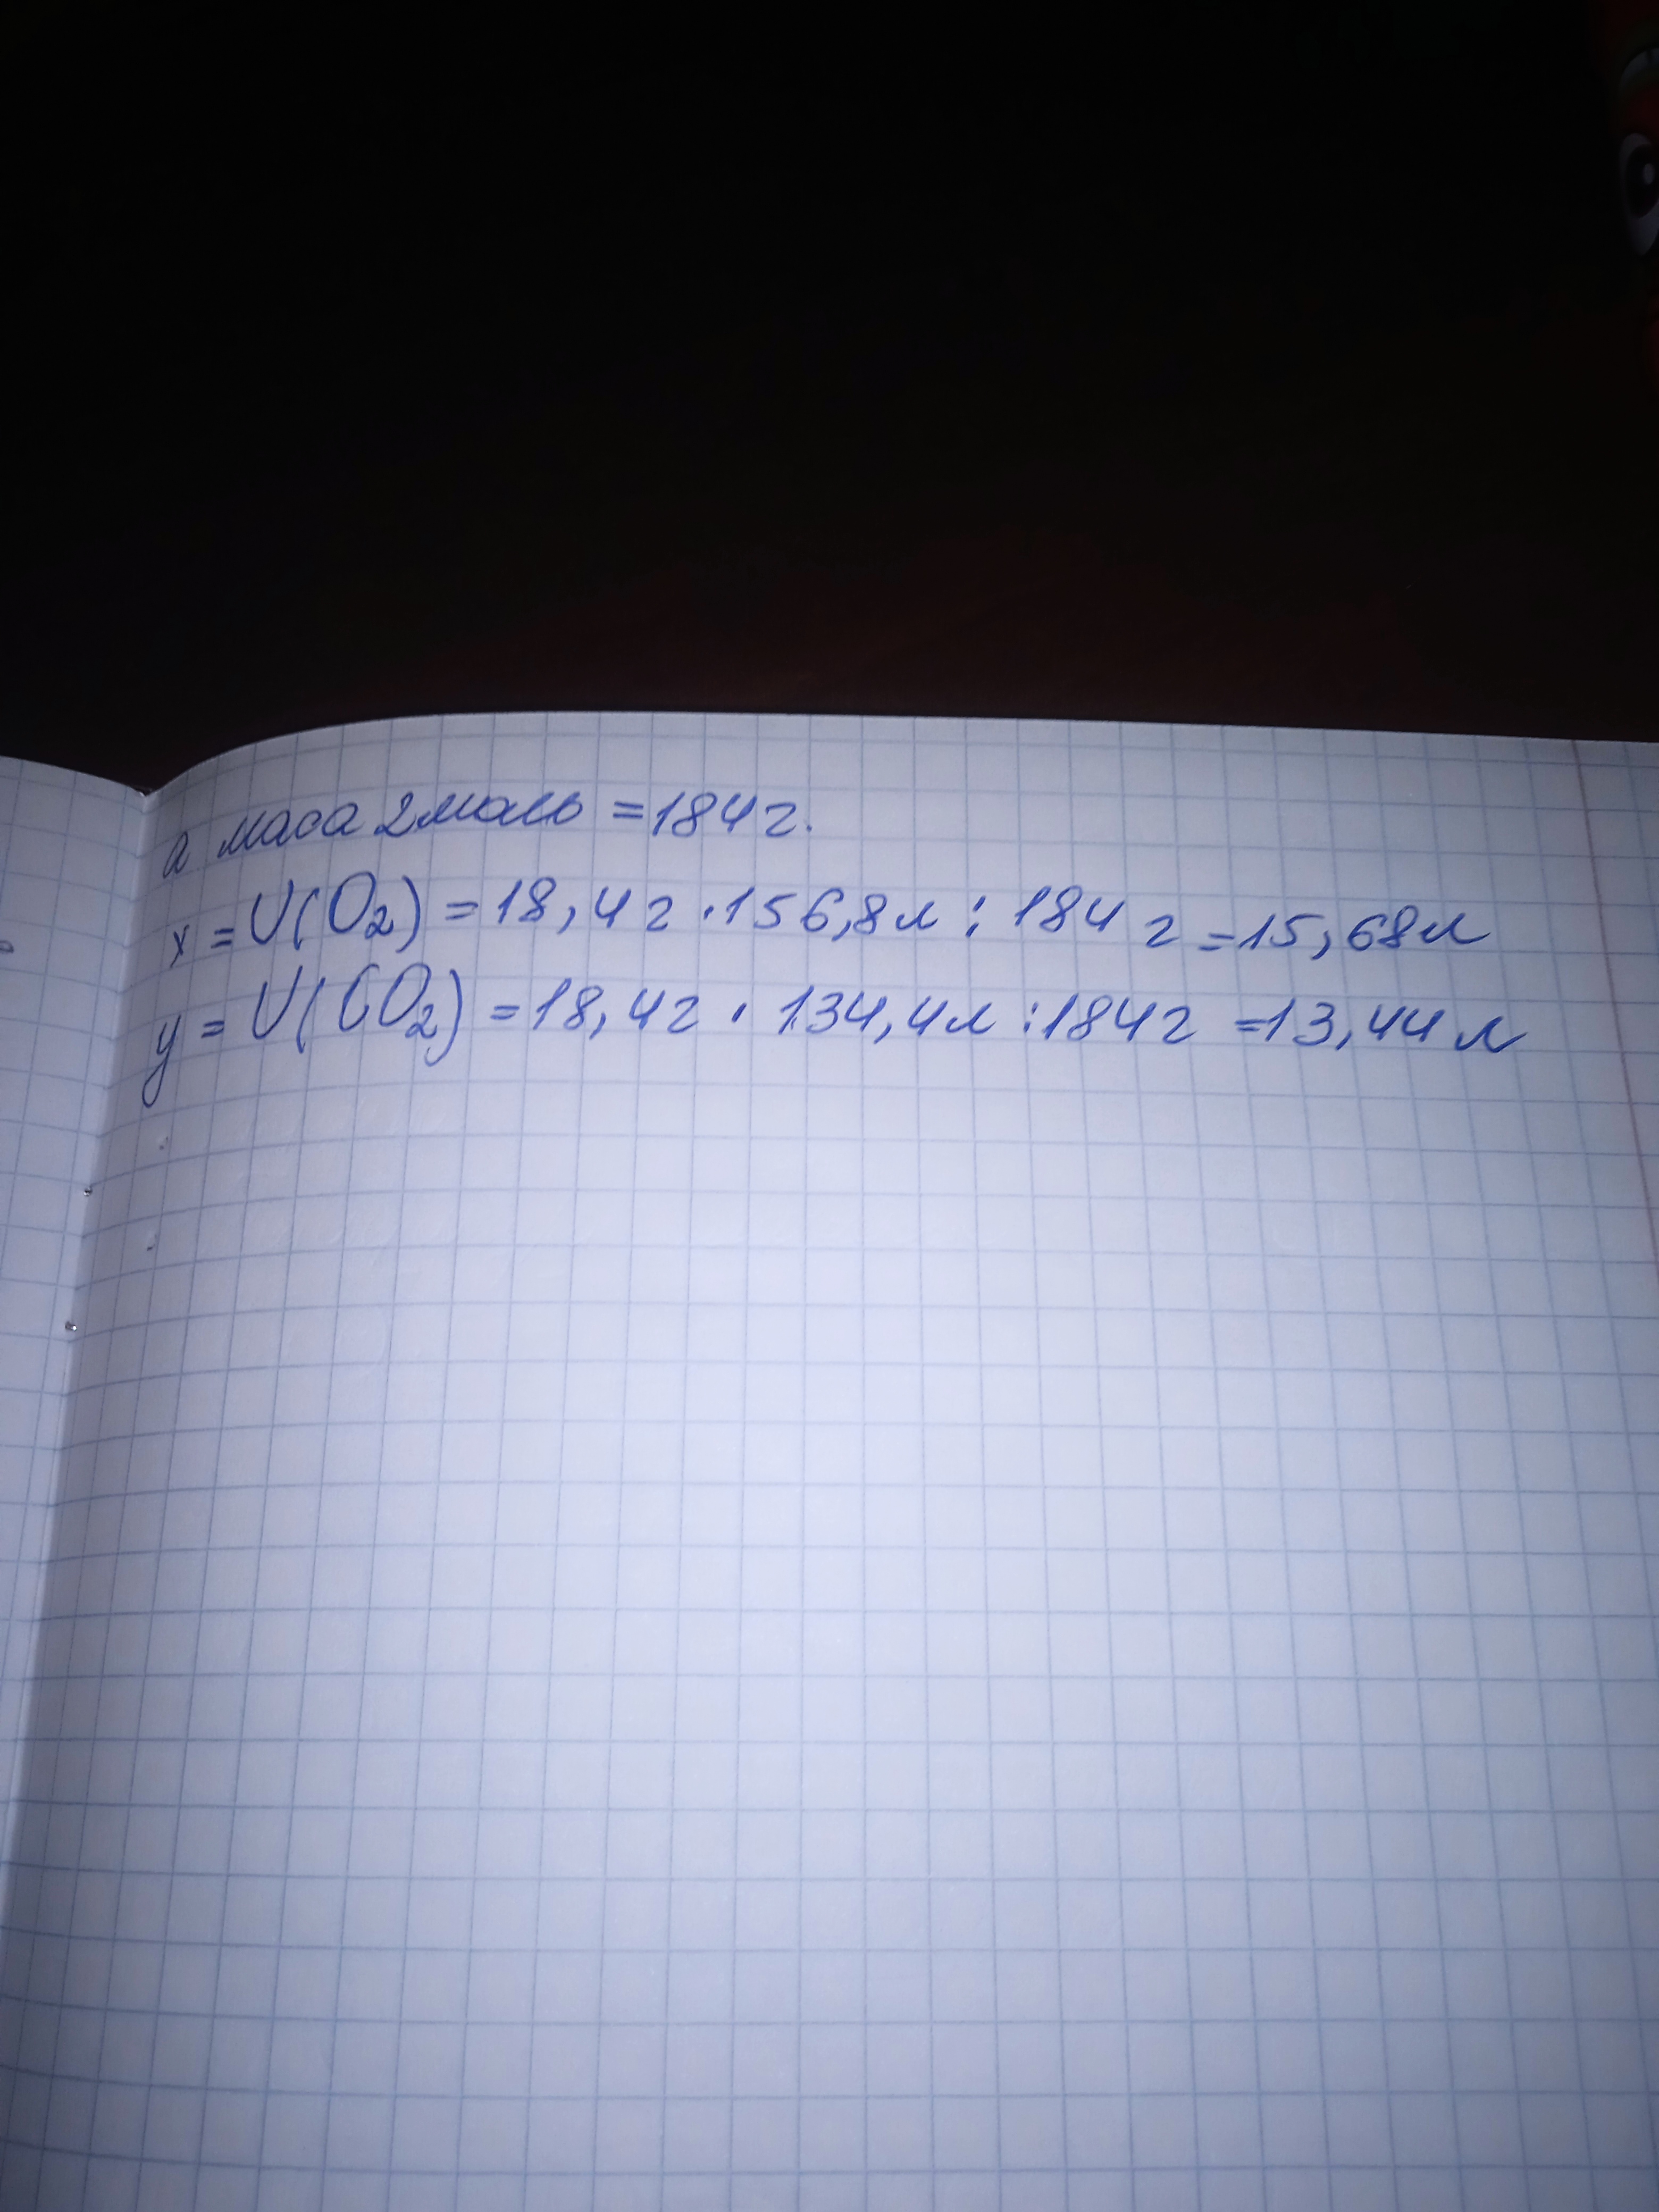 а маса 2 моль = 184 г.
x = V(O₂) = 18,4 г · 156,8 л : 184 г = 15,68 л
y = V(CO₂) = 18,4 г · 134,4 л : 184 г = 13,44 л